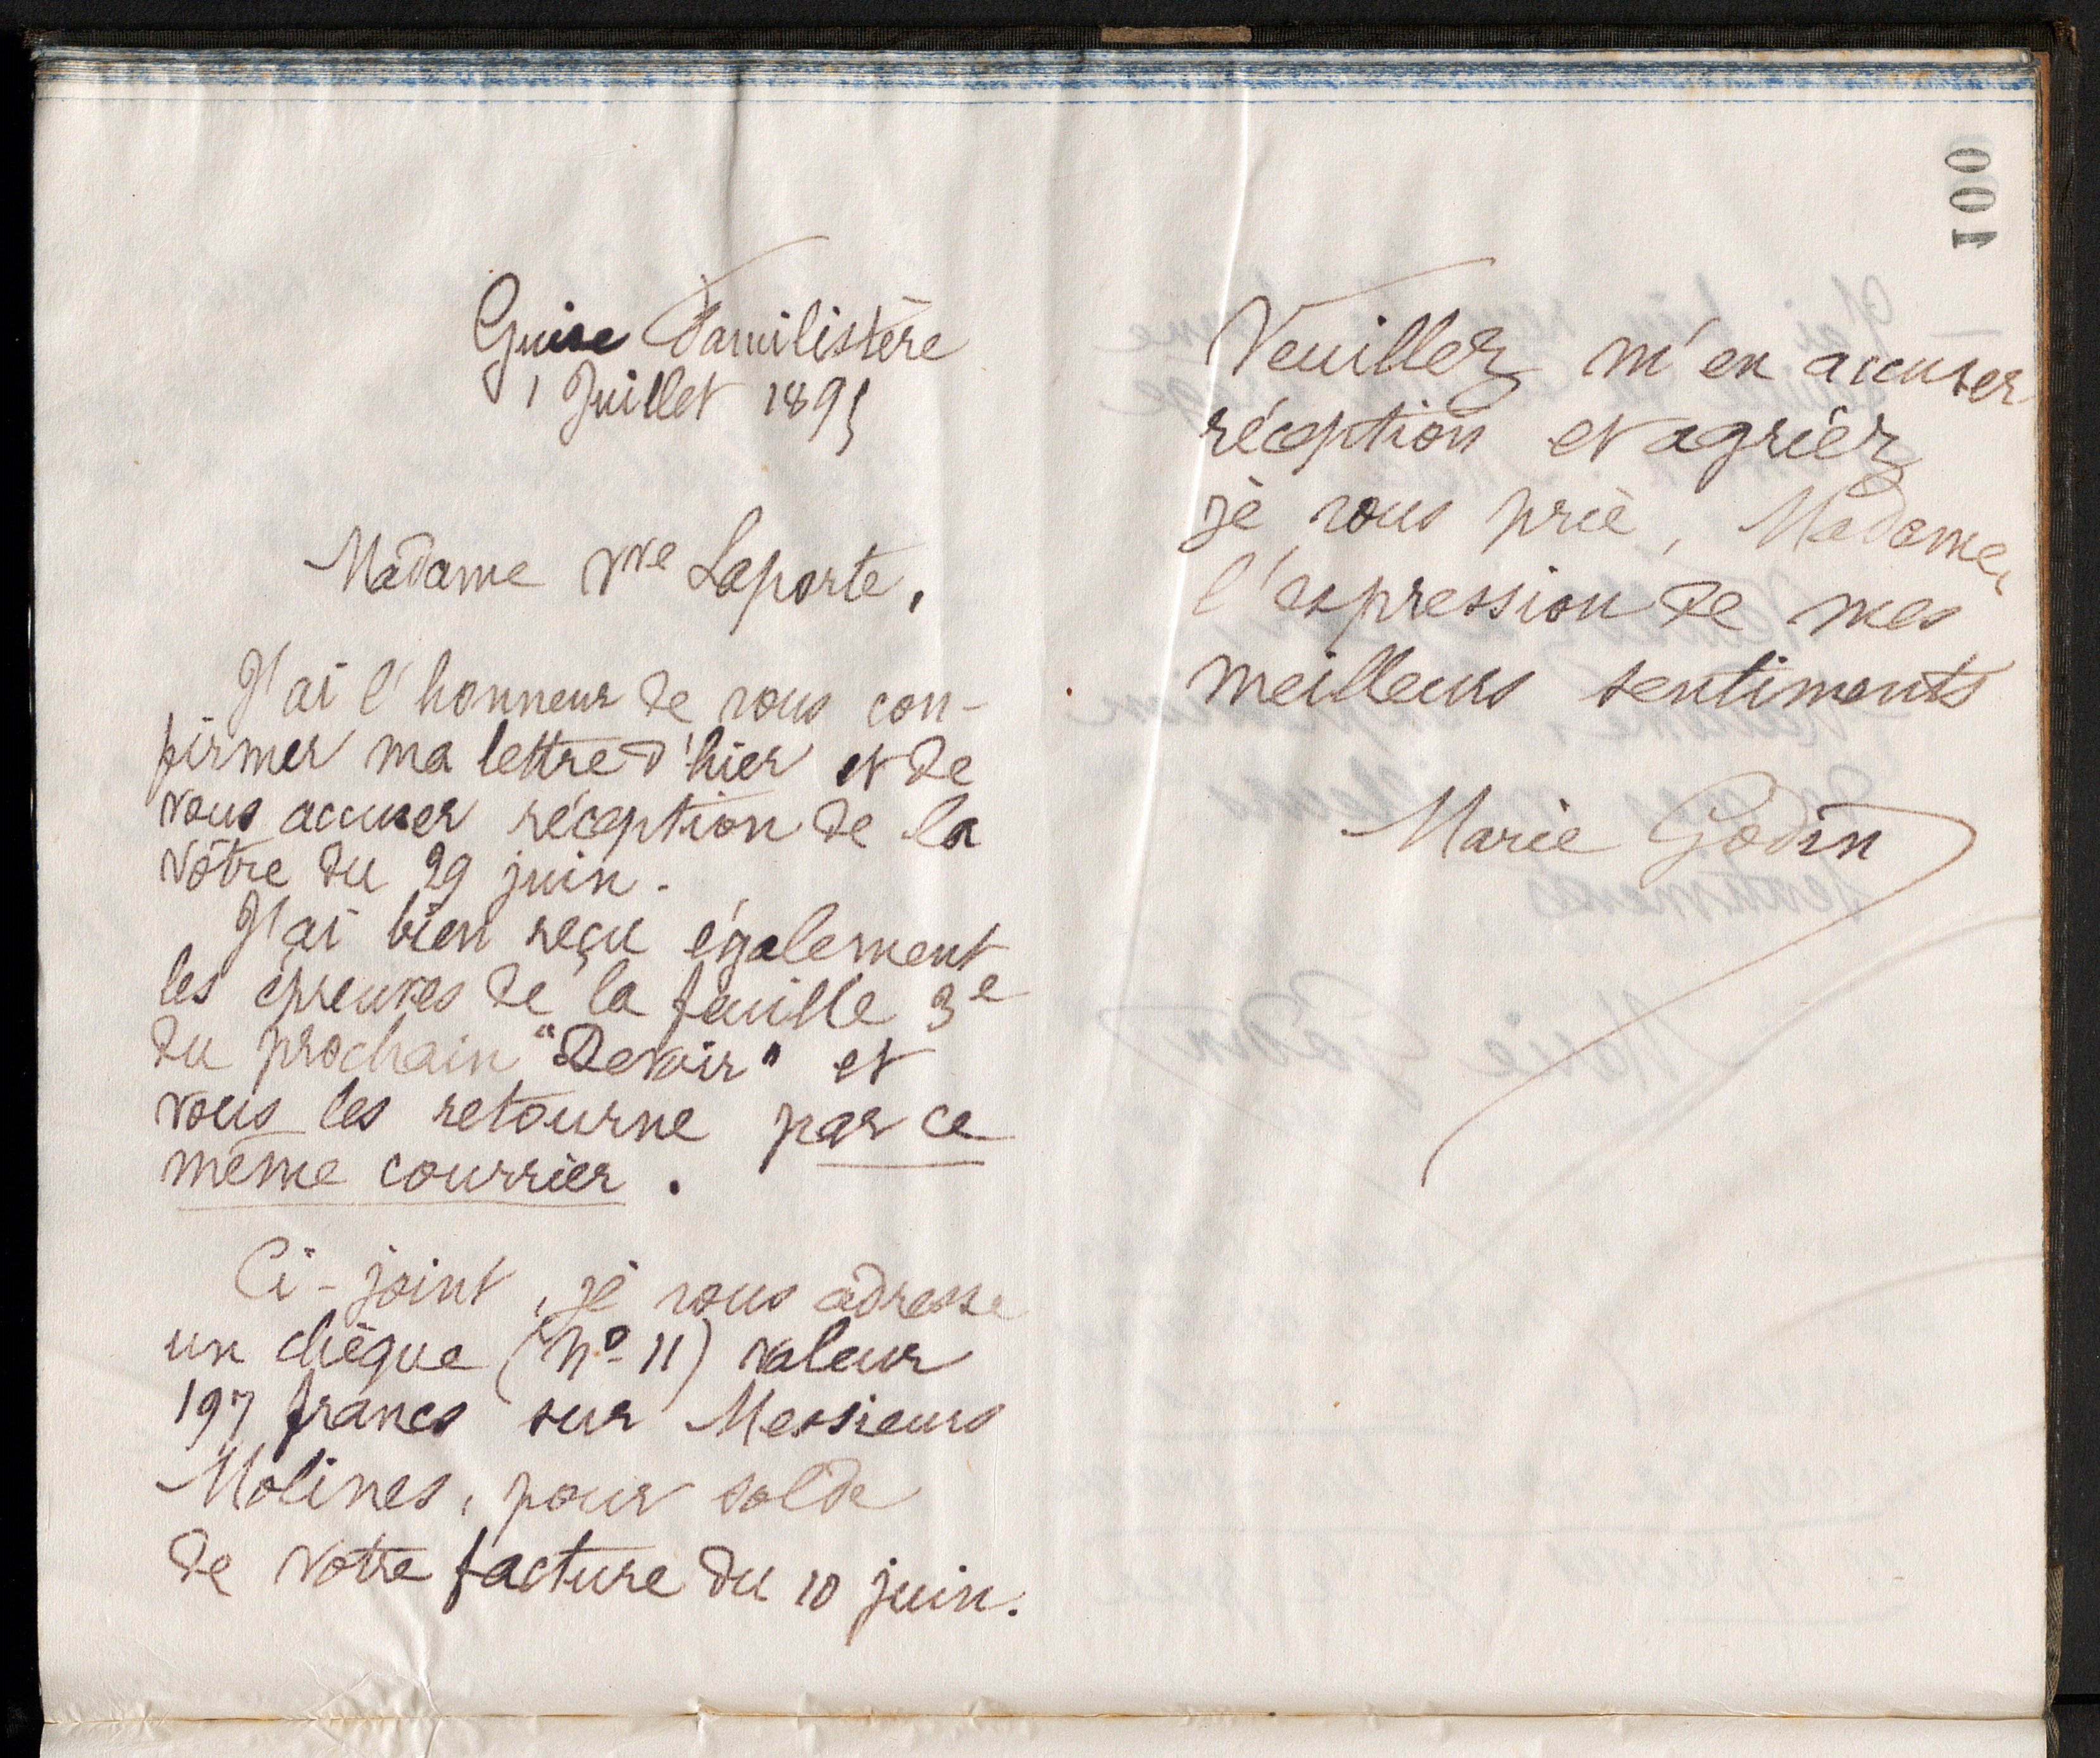 Guise Familistère
1 Juillet 1895
Madame Vve Laporte,
J'ai l'honneur de vous con-
firmer ma lettre d'hier et de
vous accuser réception de la
vôtre du 29 juin.
J'ai bien reçu également
les épreuves de la feuille 3e
du prochain "Devoir" et
vous les retourne par ce
même courrier.
Ci-joint, je vous adresse
un chèque (No 11) valeur
197 francs sur Messieurs
Molines, pour solde
de votre facture du 10 juin.
100
Veuillez m'en accuser
réception et agréer,
je vous prie, Madame,
l'expression de mes
meilleurs sentiments
Marie Godin